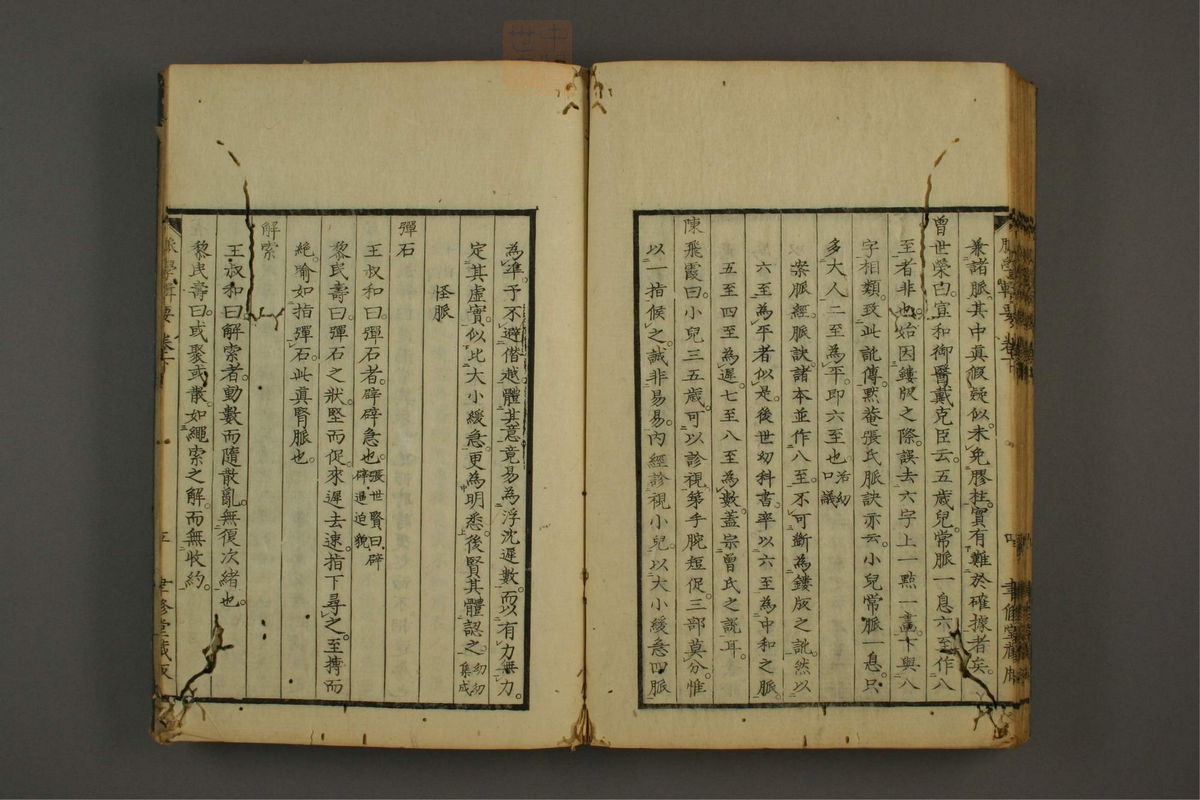 兼諸脈其中真假疑似未免膠柱實有難於確據者矣
曾世榮曰宣和御醫戴克臣云五歲兒常脈一息六至作八
至者非也始因鏤版之際誤去六字上一點一畫下與八
字相類致此訛傳默菴張氏脈訣亦云小兒常脈一息只
多大人二至為平即六至也活幼口議
案脈經脈訣諸本並作八至不可斷為鏤版之訛然以
六至為平者似是後世幼科書率以六至為中和之脈
五至四至為遲七至八至為數蓋宗曾氏之說耳
陳飛霞曰小兒三五歲可以診視第手腕短促三部莫分惟
以一指候之誠非易易內經診視小兒以大小緩急四脈
為準予不避僭越體其意竟易為浮沈遲數而以有力無力
定其虛實似比大小緩急更為明悉後賢其體認之幼幼集成
怪脈
彈石
王叔和曰彈石者辟辟急也張世賢曰辟辟逼迫貌
黎民壽曰彈石之狀堅而促來遲去速指下尋之至摶而
絕喻如指彈石此真腎脈也
解索
王叔和曰解索者動數而隨散亂無復次緒也
黎民壽曰或聚或散如繩索之解而無收約
聿修堂藏版